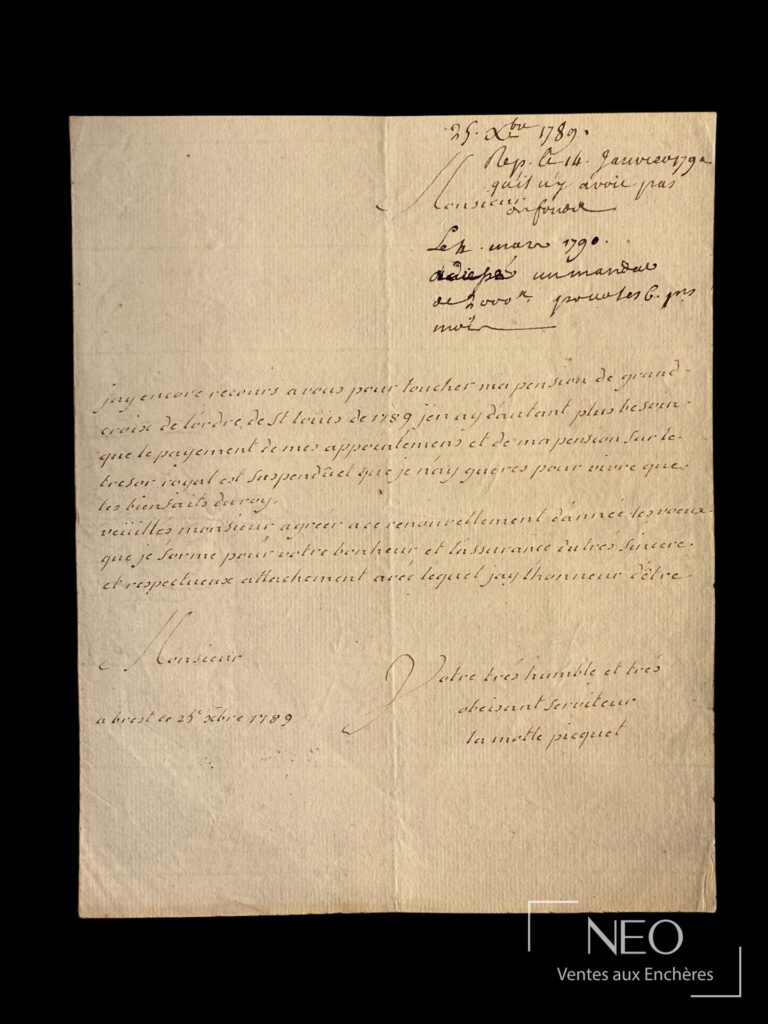 25. Xbre 1789.
Rep. le 14. Janvier 1790
qu'il n'y avoit pas
de fonds
Monsieur
Le 11. mars 1790.
adressé un mandat
de 2000tt pour les 6. prs
mois
jay encore recours a vous pour toucher ma pension de grand-
croix de l'ordre de St loüis de 1789 jén ay d'autant plus besoin
que le payement de mes appointémens et de ma pension sur le
tresor royal est suspendü et que je n'ay guéres pour vivre que
les bienfaits du roy.
veüillés monsieur agréer a ce renouvellement d'année les voeux
que je forme pour votre bonheur et l'assurance du tres sincere
et respectueux attachement avéc lequel jay lhonneur d'être
Monsieur
Votre trés humble et trés
obeisant serviteur
la motte picquet
a brest ce 25e xbre 1789
NEO
Ventes aux Enchères